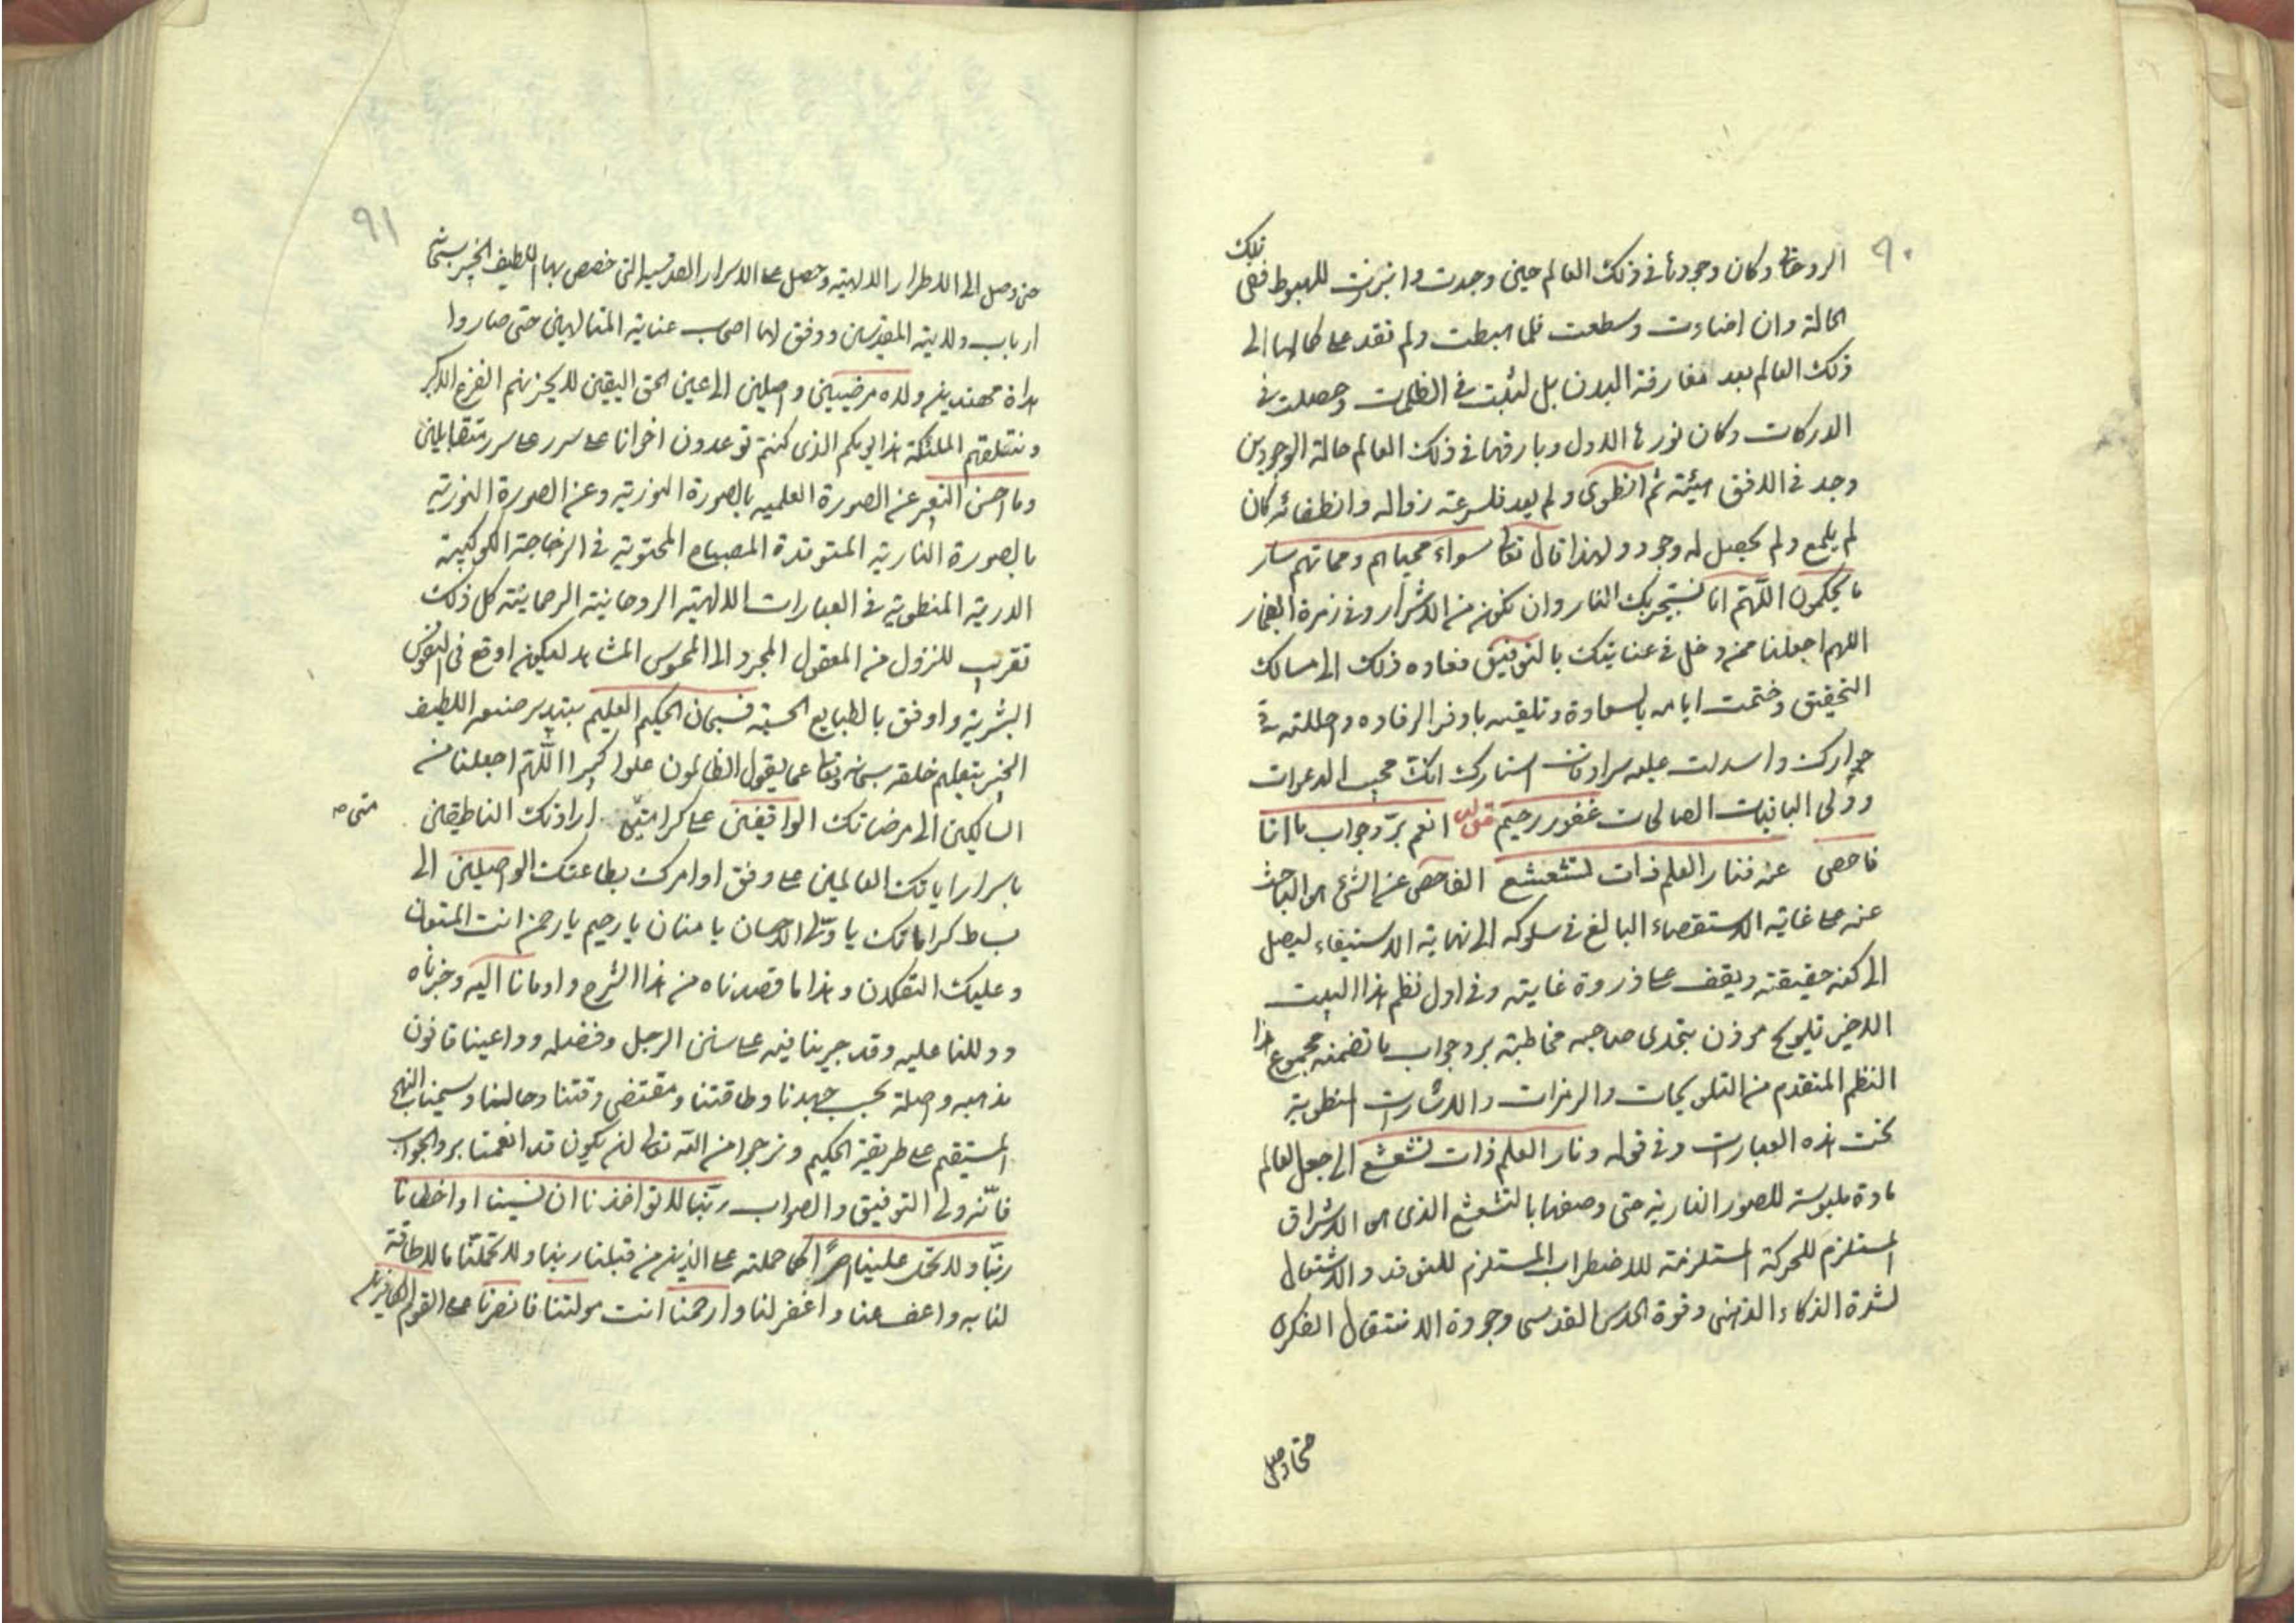 ٩٠
الروحانى وكان وجودها فى ذلك العالم حين وجدت وانبرزت للهبوط ففى تلك
الحالة وان اضاءت وسطعت فلما هبطت ولم تقد على كمالها الى
ذلك العالم بعد مفارقة البدن بل لبثت فى الظلمات وحصلت فى
الدركات وكان نورها الاول وبارقها فى ذلك العالم حالة الوجود من
وجد فى الافق هيئته ثم انطوى ولم يعد فلسرعة زواله وانطفائه كان
لم يلمع ولم يحصل له وجود ولهذا قال تعالى سواء محياهم ومماتهم ساء
ما يحكمون اللهم انا نستجيربك النار وان نكون من الاشرار وفى زمرة الفجار
اللهم اجعلنا ممن دخل فى عنايتك بالتوفيق فعاده ذلك الى مسالك
التحقيق وختمت ايامه بالسعادة وتلقيه باوفر الرفاده واحللته فى
جوارك واسدلت عليه سرادقات استارك انك مجيب الدعوات
وولى الباقيات الصالحات غفور رحيم قوله انعم برد جواب ما انا
فاحص عنه فنار العلم ذات تشعشع الفاحص عن الشئ هو الباحث
عنه على غاية الاستقصاء البالغ فى سلوكه الى نهاية الاستيفاء ليصل
الى كنه حقيقته ويقف على ذروة غايته وفى اول نظم هذا البيت
الاخير تلويح موذن بتحدى صاحبه مخاطبته برد جواب ما تضمنه مجموع هذا
النظم المتقدم من التلويحات والرمزات والاشارات المنطوية
تحت هذه العبارات وفى قوله ونار العلم ذات تشعشع الى جعل العالم
مادة ملبوسة للصور النارية حتى وصفها بالتشعشع الذى هو الاشراق
المستلزم للحركة المستلزمة للاضطراب المستلزم للتوقد والاشتعال
لشدة الذكاء الذهنى وقوة الحدس القدسى وجودة الانتقال الفكرى
حتى وصل
٩١
حتى وصل الى الاطرار الالهية وحصل على الاسرار القدسية التى خصص بها اللطيف الخبير سبحانه
ارباب ولايته المقدسين ووفق لها اصحاب عناية المتالهين حتى صاروا
هداة مهتدين ولاه مرضيين واصلين الى عين الحق اليقين لا يحزنهم الفزع الاكبر
وتتلقهم الملئكة هذا يومكم الذى كنتم توعدون اخوانا على سرر على سرر متقابلين
وما احسن التعبير عن الصورة العلمية بالصورة النورية وعن الصورة النورية
بالصورة النارية المتوقدة المصباح المحتوية فى الزجاجة الكوكبية
الدرية المنطوية فى العبارات الالهية الروحانية الرحمانية كل ذلك
تقريب للنزول من المعقول المجرد الى المحسوس المشاهد ليكون اوقع فى النفوس
البشرية واوفق بالطبايع الحسية فسبحان الحكيم العليم بتدبير صنعه اللطيف
الخبير بتعليم خلقه سبحانه وتعالى عما يقول الظالمون علوا كبيرا اللهم اجعلنا من
السالكين الى مرضاتك الواقفين على كرامتك ارادتك الناطقين
باسرار اياتك العالمين على وفق اوامرك بطاعتك الواصلين الى
بساط كراماتك يا ولى الاحسان يا منان يا رحيم يا رحمن انت المستعان
وعليك التكلان وهذا ما قصدناه من هذا الشرح واومانا اليه وخبرناه
ودللنا عليه وقد جرينا فيه على سنن الرجل وفضله وراعينا قانون
مذهبه واصله بحسب جهدنا وطاقتنا ومقتضى وقتنا وحالنا وسمينا النهج
المستقيم على طريقة الحكيم ونرجوا من الله تعالى ان يكون قد انعمنا برد الجواب
فانه ولى التوفيق والصواب ربنا لا تواخذنا ان نسينا او اخطانا
ربنا ولا تحمل علينا اصرا كما حملته على الذين من قبلنا ربنا ولا تحملنا ما لا طاقة
لنا به واعف عنا واغفر لنا وارحمنا انت مولنا فانصرنا على القوم الكافرين